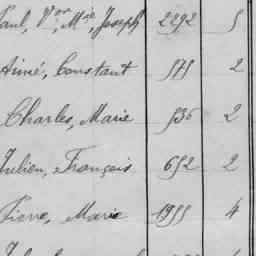 Paul, Vor, Mie, Joseph 2292 5
Aimé, Constant 575 2
Charles, Marie 536 2
Julien, François 652 2
Pierre, Marie 1955 4